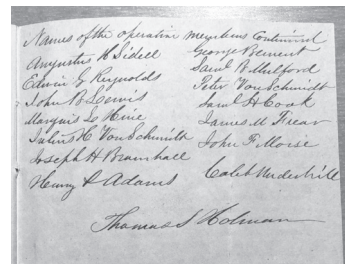 Names of the operative members Continued
Augustus H Sidell
Edwin G Reynolds
John B Loomis
Marquis Le Hine
Julius H Von Schmidt
Joseph H Bramhall
Henry P Adams
George Bement
Saml B Mulford
Peter Von Schmidt
Saml H Cook
James M Frear
John F Moise
Caleb Underhill
Thomas S Holman